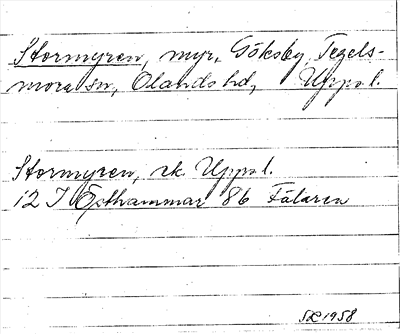 Stormyren, myr, Göksby, Tegels-
mora sn, Olands hd, Upps. l.
Stormyren, ek. Upps. l.
12 I Östhammar 8b Fälaren
1958